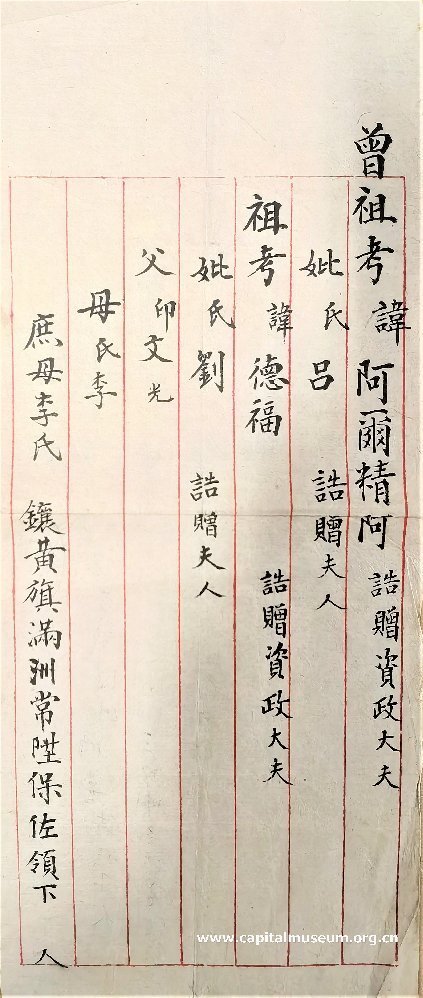 曾祖考 諱 阿爾精阿 誥贈資政大夫
妣氏 呂 誥贈夫人
祖考 諱 德福 誥贈資政大夫
妣氏 劉 誥贈夫人
父 印 文光
母氏李
庶母李氏 鑲黃旗滿洲常陞保佐領下 人
www.capitalmuseum.org.cn